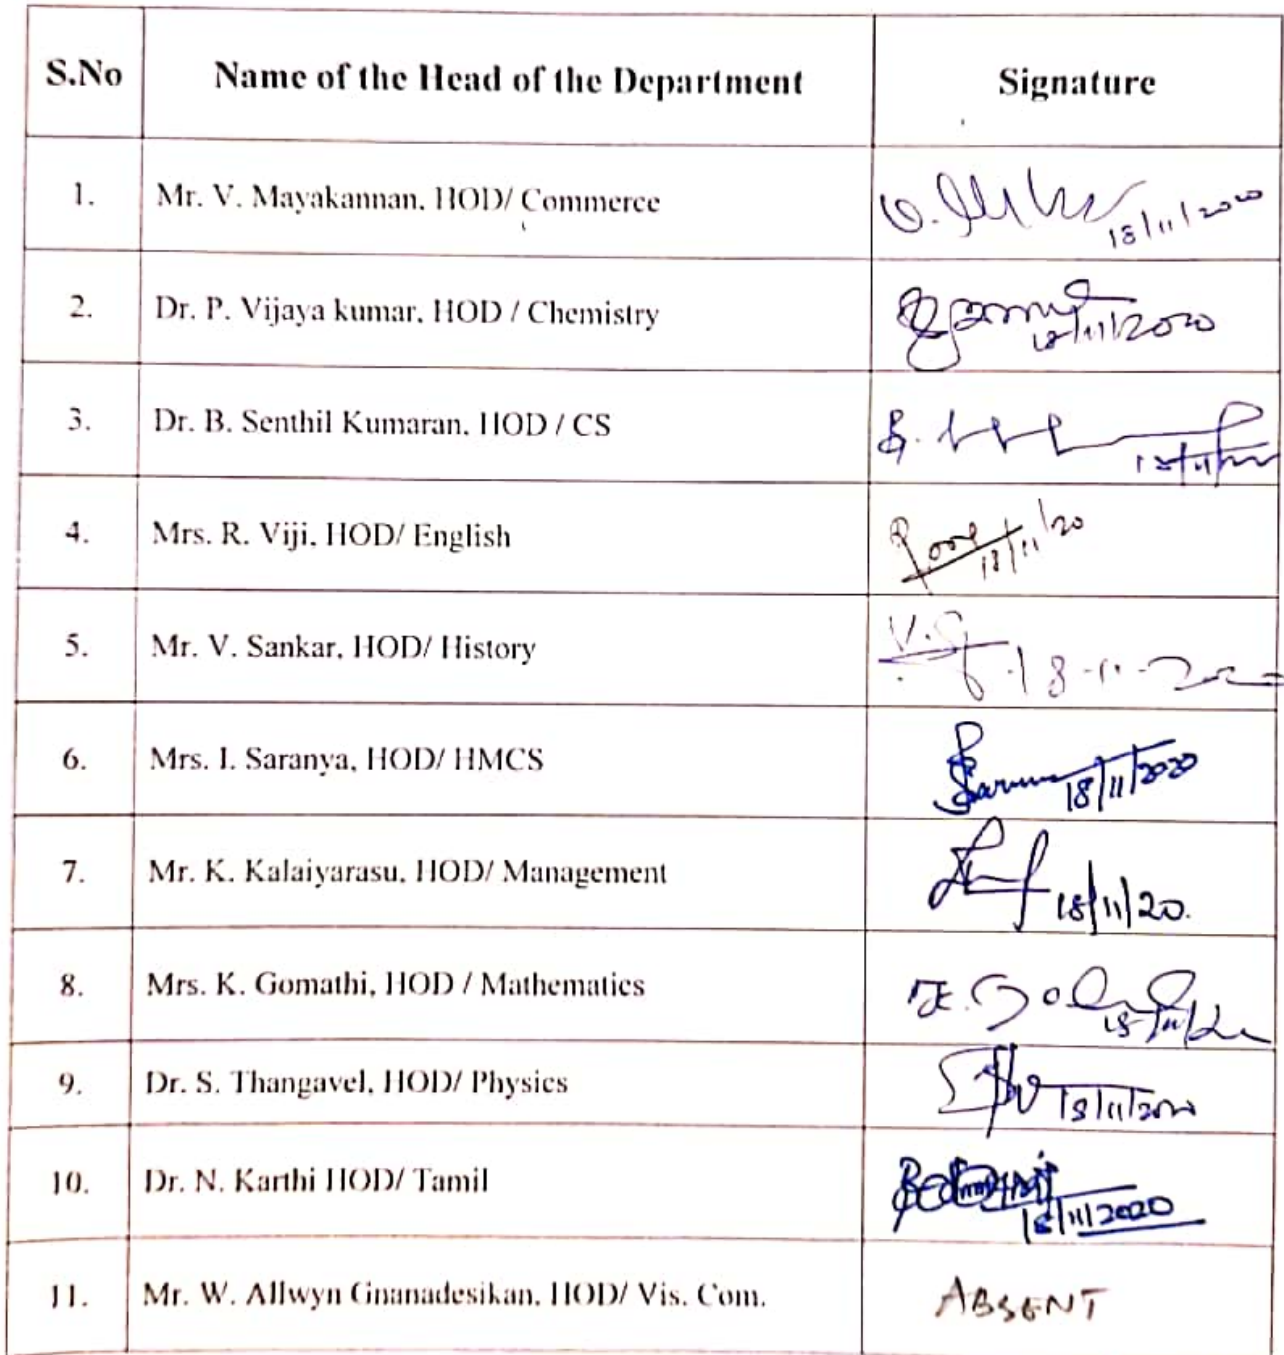 S.No Name of the Head of the Department Signature
1. Mr. V. Mayakannan, HOD/ Commerce 18/11/2020
2. Dr. P. Vijaya kumar, HOD / Chemistry 18/11/2020
3. Dr. B. Senthil Kumaran, HOD / CS B.
4. Mrs. R. Viji, HOD/ English 18/11/20
5. Mr. V. Sankar, HOD/ History 18-11-2020
6. Mrs. I. Saranya, HOD/ HMCS 18/11/2020
7. Mr. K. Kalaiyarasu, HOD/ Management 18/11/20.
8. Mrs. K. Gomathi, HOD / Mathematics
9. Dr. S. Thangavel, HOD/ Physics 18/11/2020
10. Dr. N. Karthi HOD/ Tamil 18/11/2020
11. Mr. W. Allwyn Gnanadesikan, HOD/ Vis. Com. ABSENT